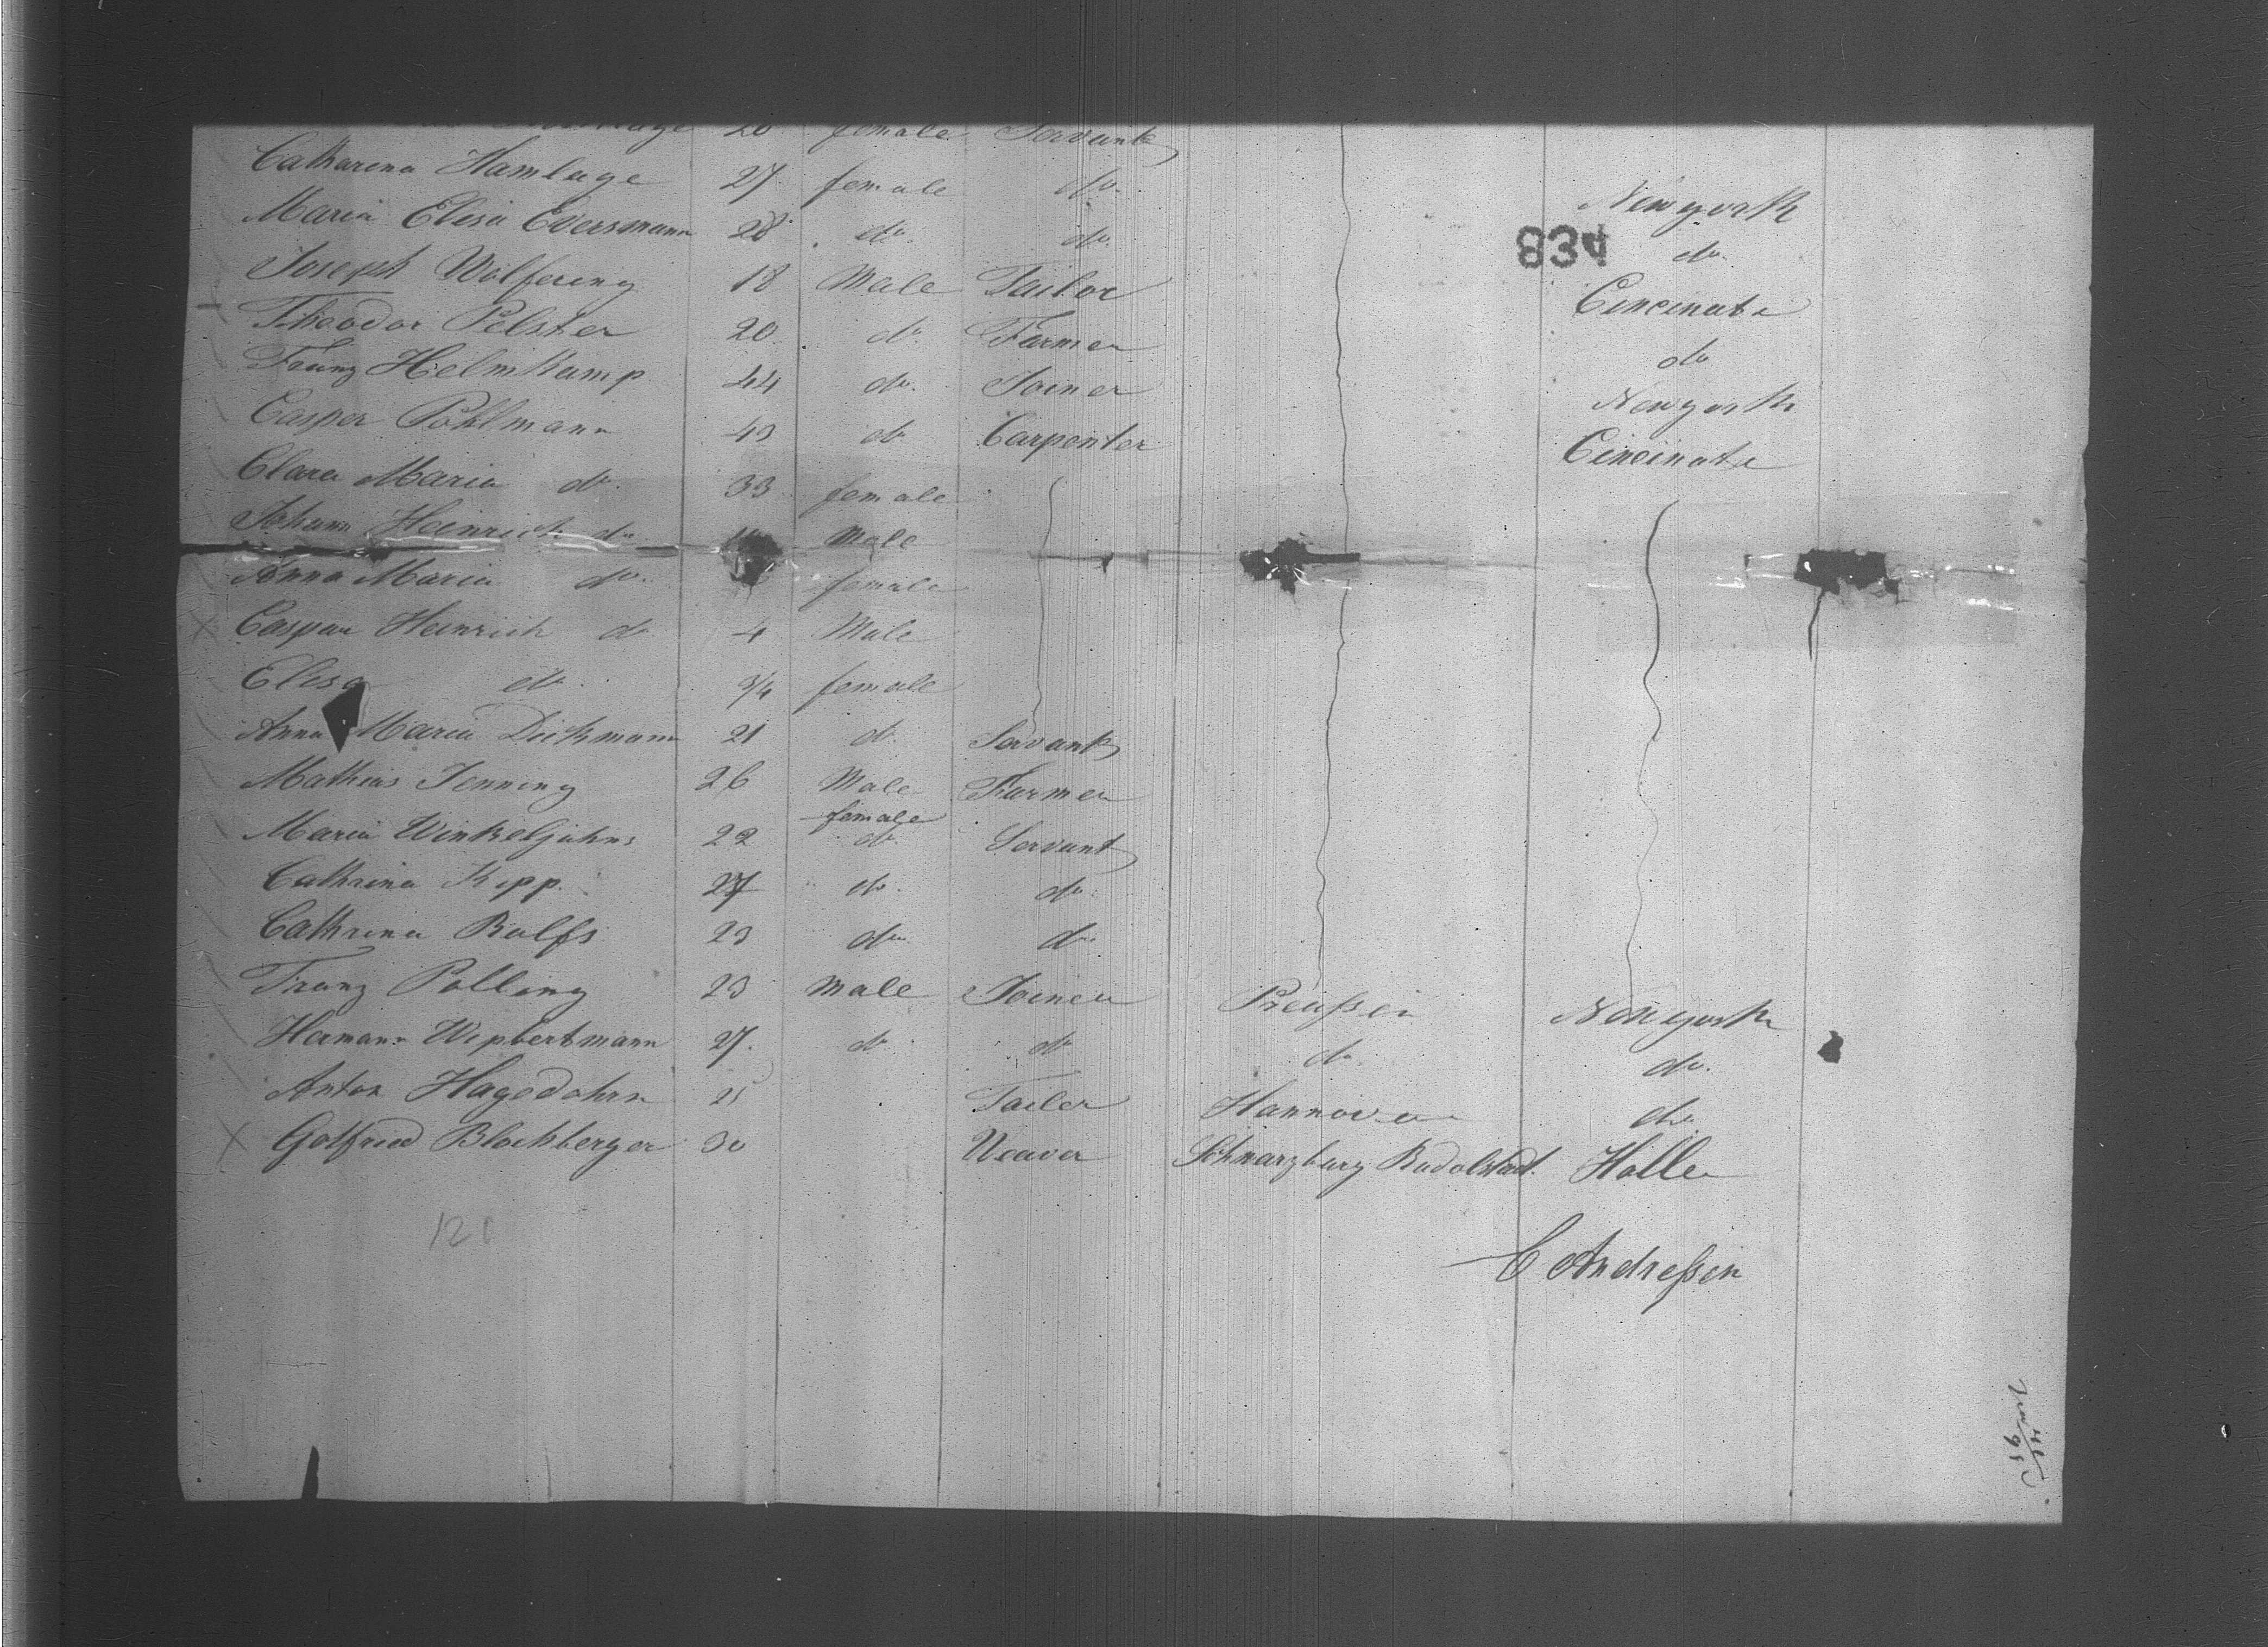 26 female Servant
Catharina Hamlage 27 female do Newyork
Maria Elisa Eversmann 28 do do do
834
Joseph Wolfering 18 Male Tailor Cincinati
Theodor Pelster 20 do Farmer do
Franz Helmkamp 44 do Joiner Newyork
Casper Pohlmann 43 do Carpenter Cincinati
Clara Maria do 33 female
Johann Heinrich do Male
Anna Maria do female
Caspar Heinrich do 4 Male
Elisa do 3/4 female
Anna Maria Dickmann 21 do Servant
Mathias Jenning 26 Male Farmer
female
Maria Winkeljohns 22 do Servant
Cathrina Kipp 27 do do
Cathrina Rolfs 23 do do
Franz Polling 23 Male Joiner Preußen Newyork
Hermann Wipbertmann 27 do do do do
Anton Hagedohrn 25 Tailer Hannover do
Gotfried Blochberger 30 Weaver Schwarzburg Rudolstadt Halle
120
C Andreßen